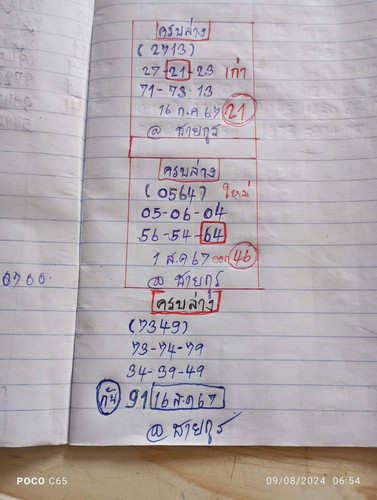 ครบล่าง
(2713)
27-21-23 เก่า
71-73-13
16 ก.ค 67 21
@ ชายกูร
ครบล่าง
(0564) ใหม่
05-06-04
56-54-64
1 ส.ค 67 ออก 46
@ ชายกูร
ครบล่าง
(7349)
73-74-79
34-39-49
กัน 91 16 ส.ค 67
@ ชายกูร
0700
POCO C65
09/08/2024 06:54